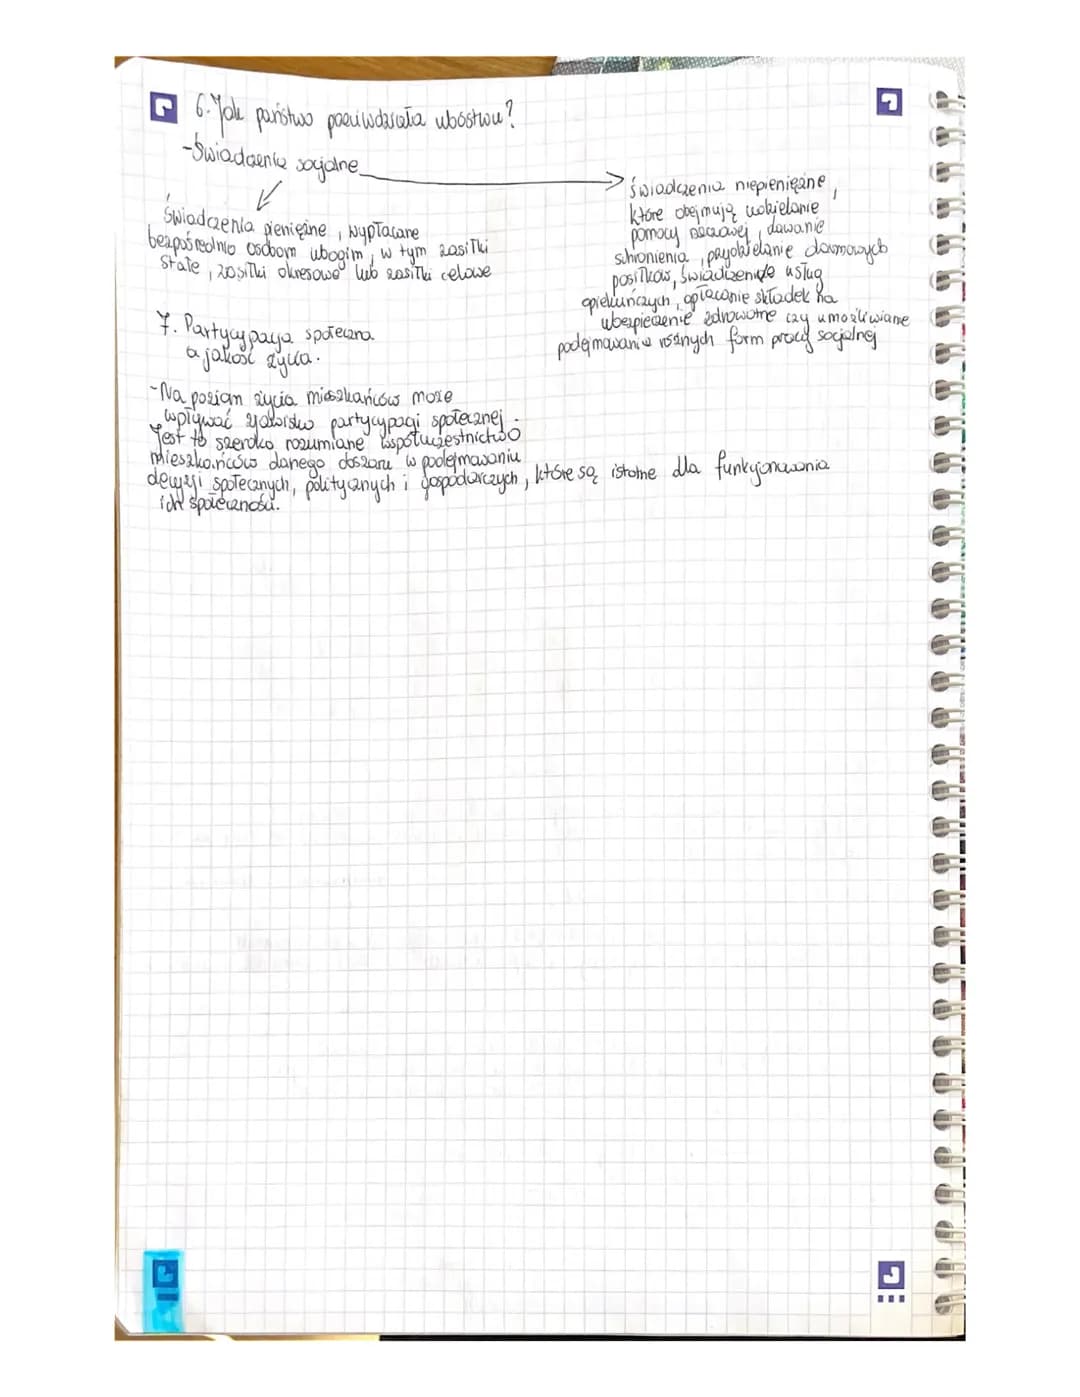 6. Jak państwo przeciwdziała ubóstwu?
- Świadczenia socjalne
Świadczenia pieniężne, wypłacane
bezpośrednio osobom ubogim, w tym zasiłki
stałe, zasiłki okresowe lub zasiłki celowe
świadczenia niepieniężne,
które obejmują udzielanie
pomocy rzeczowej, dawanie
schronienia, przydzielanie darmowych
posiłków, świadczenie usług
opiekuńczych, opłacanie składek na
ubezpieczenie zdrowotne czy umożliwianie
podejmowania różnych form pracy socjalnej
7. Partycypacja społeczna
a jakość życia.
- Na poziom życia mieszkańców może
wpływać zjawisko partycypacji społecznej.
Jest to szeroko rozumiane współuczestnictwo
mieszkańców danego obszaru w podejmowaniu
decyzji społecznych, politycznych i gospodarczych, które są istotne dla funkcjonowania
ich społeczności.